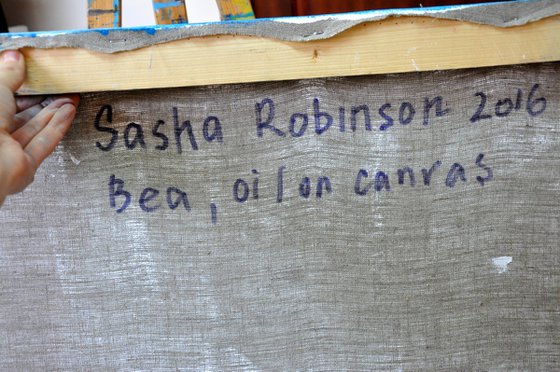 Sasha Robinson 2016
Bea, oil on canvas